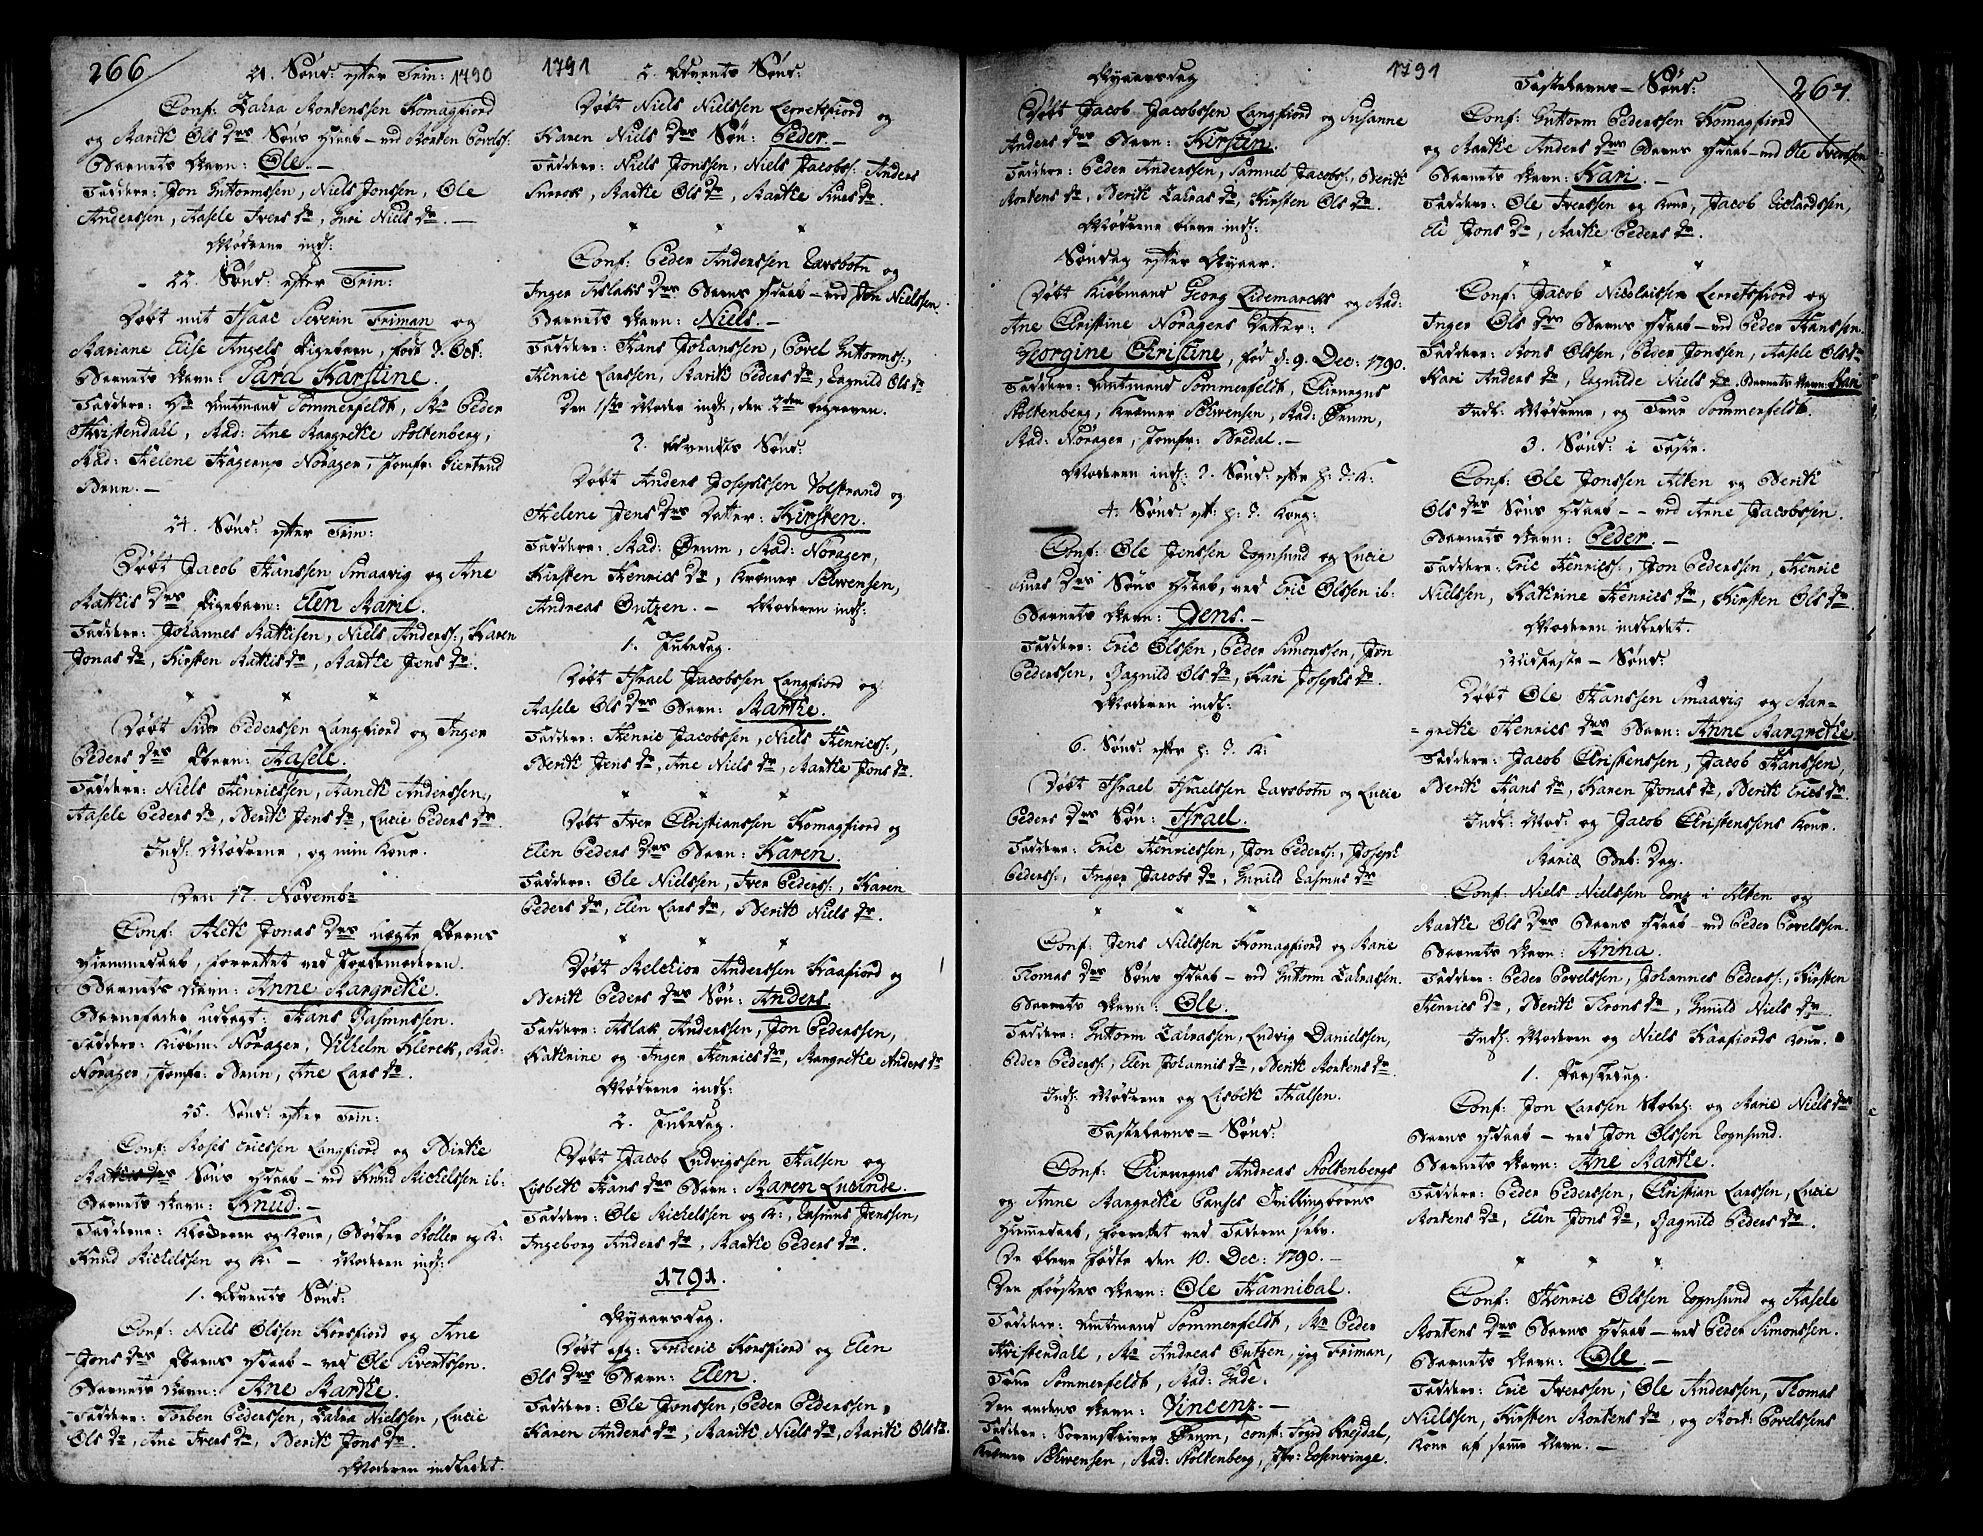 266
21. Sønd: efter Trin: 1790
Conf: Zakra Mortenssen Komagfiord
og Marith Ols Drs Søns Hdaab – ved Morten Povels:
Barnets Navn: Ole. –
Faddere: Jon Guttormssen, Niels Jonssen, Ole
Anderssen, Aasele Ivers Dr, Guri Niels Dr. –
Mødrene indl:
22. Sønd: efter Trin:
Døbt mit Isaac Severin Friman og
Mariane Elise Angels Pigebarn, født 3. Oct:
Barnets Navn: Sara Karstine.
Faddere: Hr Amtmand Sommerfeldt, Mr Peder
Qvistendall, Mad: Ane Margrethe Stoltenberg,
Mad: Helene Hagerup Norager, Jomfr: Giertrud
Brun. –
24. Sønd: efter Trin:
Døbt Jacob Hanssen Smaavig og Ane
Mathis Drs Pigebarn: Elen Marie.
Faddere: Johannes Mathisen, Niels Anderss:, Karen
Jonas Dr, Kirsten Mathis Dr, Marthe Jens Dr.
Døbt Siver Pederssen Langfiord og Inger
Peders Drs Pbarn: Aasele.
Faddere: Niels Henricssen, Marith Anderssen,
Aasele Peders Dr, Berith Jens Dr, Lucie Peders Dr.
Indl: Mødrene, og min Kone.
Den 17. Novembr
Conf: Aleth Jonas Drs uægte Pbarns
Hiemmedaab, forrettet ved Jordemoderen.
Barnets Navn: Anne Margrethe.
Barnefader udlagt: Hans Rasmussen.
Faddere: Kiøbm: Norager, Vilhelm Klerck, Mad:
Norager, Jomfr: Brun, Ane Lars Dr.
25. Sønd: efter Trin:
Conf: Moses Ericssen Langfiord og Birthe
Mathis Drs Søns Hdaab – ved Knud Michelssen ib:
Barnets Navn: Knud. –
Faddere: Klokkeren og Kone, Søster Moller og K:
Knud Michelssen og K: – Moderen indl:
1. Advents Sønd:
Conf: Niels Olssen Korsfiord og Ane
Jons Drs Pbarns Hdaab – ved Ole Sivertssen.
Barnets Navn: Ane Marthe.
Faddere: Torben Pederssen, Zakra Nielssen, Lucie
Ols Dr, Ane Ivers Dr, Berith Jons Dr.
Moderen indledet.
1791
2. Advents Sønd:
Døbt Niels Nielssen Lerretsfiord og
Karen Niels Drs Søn: Peder. –
Faddere: Niels Jonssen, Niels Jacobs: Anders
Marthe Ols Dr, Marthe Dr.
Conf: Peder Anderssen Ravsbotn og
Inger Aslaks Drs Barns Hdaab – ved Jon Nielssen.
Barnets Navn: Niels. –
Faddere: Hans Johanssen, Povel Guttorms:,
Henric Larssen, Marith Peders Dr, Ragnild Ols Dr
Den 1ste Moder indl:, den 2den begraven.
3. Advents Sønd:
Døbt Anders Josephssen Tolstrand og
Helene Jens Drs Datter: Kirsten.
Faddere: Mad: Ørum, Mad: Norager,
Kirsten Henrics Dr, Kræmer Solwensen,
Andreas Ontzen. – Moderen indl:
1. Juledag.
Døbt Israel Jacobssen Langfiord og
Aasele Ols Drs Barn: Marthe.
Faddere: Henric Jacobssen, Niels Henrics:,
Berith Jens Dr, Ane Niels Dr, Marthe Jons Dr.
Døbt Iver Christianssen Komagfiord og
Elen Peders Drs Barn: Karen.
Faddere: Ole Nielssen, Iver Pederss:, Karen
Peders Dr, Elen Lars Dr, Berith Niels Dr.
Døbt Melchior Anderssen Kaafiord og
Berith Peders Drs Søn: Anders
Faddere: Aslak Anderssen, Jon Pederssen,
Kathrine og Inger Henrics Dr, Margrethe Anders Dr
Mødrene indl:
2. Juledag.
Døbt Jacob Ludvigssen Halsen og
Lisbeth Hans Drs Barn: Karen Lucinde.
Faddere: Ole Michelssen og K:, Rasmus Jenssen,
Ingeborg Anders Dr, Marthe Peders Dr.
1791.
Nyaarsdag.
Døbt afg: Frideric Korsfiord og Elen
Ols Drs Barn: Elen.
Faddere: Ole Jonssen, Peder Pederssen,
Karen Anders Dr, Marith Niels Dr, Marith Ols Dr.
Nyaarsdag
1791
Døbt Jacob Jacobssen Langfiord og Susanne
Anders Drs Barn: Kirsten.
Faddere: Peder Anderssen, Samuel Jacobs:, Berith
Mortens Dr, Berith Zakras Dr, Kirsten Ols Dr.
Mødrene bleve indl:
Søndag efter Nyaar.
Døbt Kiøbmand Georg Lidemarcks og Mad:
Ane Christine Noragers Datter:
Georgine Christine, fød d: 9. Dec: 1790.
Faddere: Amtmand Sommerfeldt, Chirurgus
Stoltenberg, Kræmer Solwensen, Mad: Ørum,
Mad: Norager, Jomfr: Bredal. –
Moderen indl: 3. Sønd: efter H: 3: K:
4. Sønd: eft: H: 3. Kong:
Conf: Ole Jenssen Rognsund og Lucie
Drs Søns Hdaab, ved Eric Olssen ib:
Barnets Navn: Jens. –
Faddere: Eric Olssen, Peder Simonssen, Jon
Pederssen, Ragnild Ols Dr, Kari Josephs Dr.
Moderen indl:
6. Sønd: efter H: 3. K:
Døbt Israel Israelssen Ravsbotn og Lucie
Peders Drs Søn: Israel.
Faddere: Eric Henricssen, Jon Peders:, Joseph
Peders:, Inger Jacobs Dr, Gunild Rasmus Dr
Conf: Jens Nielssen Komagfiord og Marie
Thomas Drs Søns Hdaab – ved Guttorm Zakrassen.
Barnets Navn: Ole.
Faddere: Guttorm Zakrassen, Ludvig Danielssen,
Peder Peders:, Elen Johannis Dr, Berith Mortens Dr.
Indl: Mødrene og Lisbeth Halsen.
Fastelavns – Sønd:
Conf: Chirurgus Andreas Stoltenbergs
og Anne Margrethe Panses Tvillingbørns
Hiemmedaab, forrettet ved Faderen selv.
De bleve fødte den 10. Dec: 1790. –
Den førstes Navn: Ole Hannibal.
Faddere: Amtmand Sommerfeldt, Mr Peder
Qvistendall, Mr Andreas Ontzen, jeg Friman,
Frue Sommerfeldt, Mad: Gade.
Den andens Navn: Vincenz. –
Faddere: Sorenskriver Ørum, const: Fogd Krejdal,
Kræmer Solwensen, Mad: Stoltenberg, Jfr: Rosenvinge.
Fastelavns – Sønd:
267
Conf: Guttorm Pederssen Komagfiord
og Marthe Anders Drs Barns Hdaab – ved Ole Iverssen
Barnets Navn: Kari. –
Faddere: Ole Iverssen og Kone, Jacob Richardssen,
Eli Jons Dr, Marthe Peders Dr.
Conf: Jacob Nicolaissen Lerretsfiord og
Inger Ols Drs Barns Hdaab – ved Peder Hanssen.
Faddere: Mons Olssen, Peder Jonssen, Aasele Ols Dr
Kari Anders Dr, Ragnilde Niels Dr. Barnets Navn: Kari
Indl: Mødrene, og Frue Sommerfeldt.
3. Sønd: i Faste.
Conf: Ole Jonssen Alten og Berith
Ols Drs Søns Hdaab – – ved Arne Jacobssen.
Barnets Navn: Peder. –
Faddere: Eric Henrics:, Jon Pederssen, Henric
Nielssen, Kathrine Henrics Dr, Kirsten Ols Dr.
Moderen indledet.
Midfaste – Sønd:
Døbt Ole Hanssen Smaavig og Mar=
=grethe Henrics Drs Barn: Anne Margrethe
Faddere: Jacob Christenssen, Jacob Hanssen,
Berith Hans Dr, Karen Jonas Dr, Berith Erics Dr.
Indl: Mod: og Jacob Christenssens Kone.
Mariæ Beb: Dag.
Conf: Niels Nielssen i Alten og
Marthe Ols Drs Barns Hdaab – ved Peder Povelssen.
Barnets Navn: Anna.
Faddere: Peder Povelssen, Johannes Peders:, Kirsten
Henrics Dr, Berith Trons Dr, Gunild Niels Dr
Indl: Moderen og Niels Kaafiords Kone.
1. Paaskedag.
Conf: Jon Larssen og Marie Niels Drs
Barns Hdaab – ved Jon Olssen Rognsund.
Barnets Navn: Ane Marthe.
Faddere: Peder Pederssen, Christian Larssen, Lucie
Mortens Dr, Elen Jons Dr, Ragnild Peders Dr.
Conf: Henric Olssen Rognsund og Aasele
Mortens Drs Barns Hdaab – ved Peder Simonssen.
Barnets Navn: Ole –
Faddere: Eric Iverssen, Ole Anderssen, Thomas
Nielssen, Kirsten Mortens Dr, og Mort: Povelssens
Kone af samme Navn. –